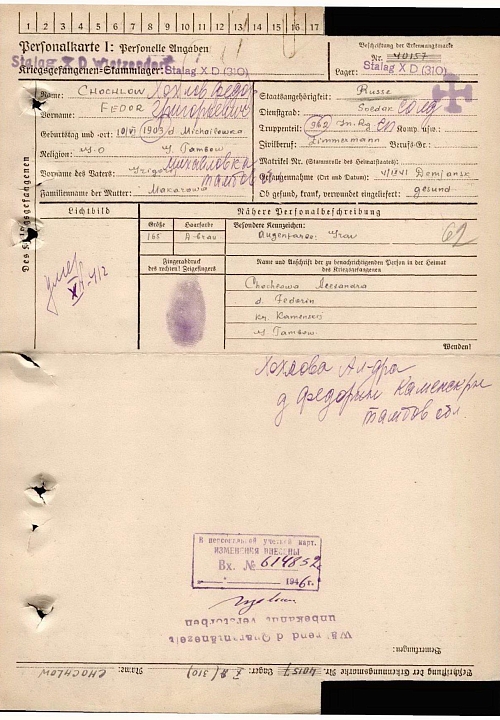 1 2 3 4 5 6 7 8 9 10 11 12 13 14 15 16 17
Personalkarte I: Personelle Angaben
Beschriftung der Erkennungsmarke
Nr. 40157
Stalag X D Wietzendorf
Kriegsgefangenen-Stammlager: Stalag X D (310)
Lager: Stalag X D (310)
Des Kriegsgefangenen
Name: CHOCHLOW Хохлов Федор
Vorname: FEDOR Григорьевич
Geburtstag und -ort: 1903 d. Michailowka
Religion: G. Tambow
михайловка
Vorname des Vaters: Grigori
тамбов
Familienname der Mutter: Makarowa
Staatsangehörigkeit: Russe
Dienstgrad: Soldat солд
Truppenteil: 962 Inf. Rg. Komp. usw.:
Zivilberuf: Zimmermann Berufs-Gr.:
Matrikel Nr. (Stammrolle des Heimatstaates):
Gefangennahme (Ort und Datum): Demjansk
Ob gesund, krank, verwundet eingeliefert: gesund
Lichtbild
Nähere Personalbeschreibung
Größe
Haarfarbe
Besondere Kennzeichen:
165
Augenfarbe: Grau
62
Fingerabdruck
des rechten! Zeigefingers
Name und Anschrift der zu benachrichtigenden Person in der Heimat
des Kriegsgefangenen
умер
Chochlowa Alexandra
d. Fedorin
kr. Kamenski
G. Tambow
Wenden!
Хохлова Ал-дра
д Федорин Каменск р
тамбов обл.
В персональной учетной карт.
ИЗМЕНЕНИЯ ВНЕСЕНЫ
Вх. № 614852
1946 г.
Während d Quarantänezeit
unbekannt verstorben
Bemerkungen:
Beschriftung der Erkennungsmarke Nr. 40157 Lager: X D (310) Name: CHOCHLOW